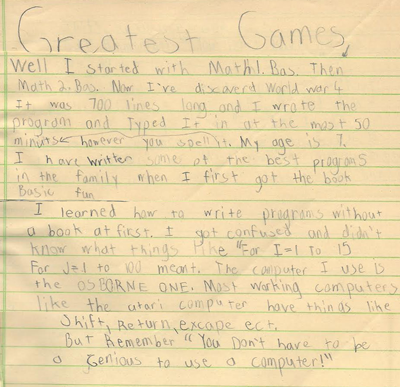 Greatest Games
Well I started with Math1.Bas. Then
Math 2.Bas. Now I've discoverd World war 4
It was 700 lines long and I wrote the
program and Typed It in at the most 50
minuits ← however you spell it. My age is 7.
I have written some of the best programs
in the family when I first got the book
Basic fun
I learned how to write programs without
a book at first. I got confused and didn't
know what things like "For I=1 to 15
For J=1 to 100 meant. The computer I use is
the OSBORNE ONE. Most working computers
like the atari computer have things like
Shift, Return, excape ect.
But Remember "You Don't have to be
a Genious to use a computer!"